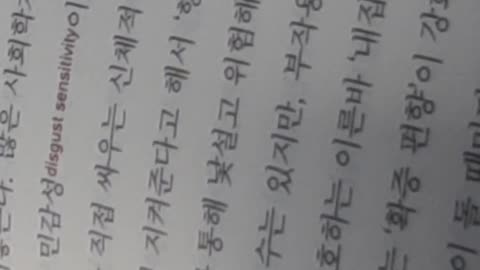 많은 사회학
민감성disgust sensitivity이
직접 싸우는 신체적
지켜준다고 해서 '항
통해 낯설고 위험해
수는 있지만, 부작용
호하는 이른바 '내집
'확증 편향'이 강
이 둘 때